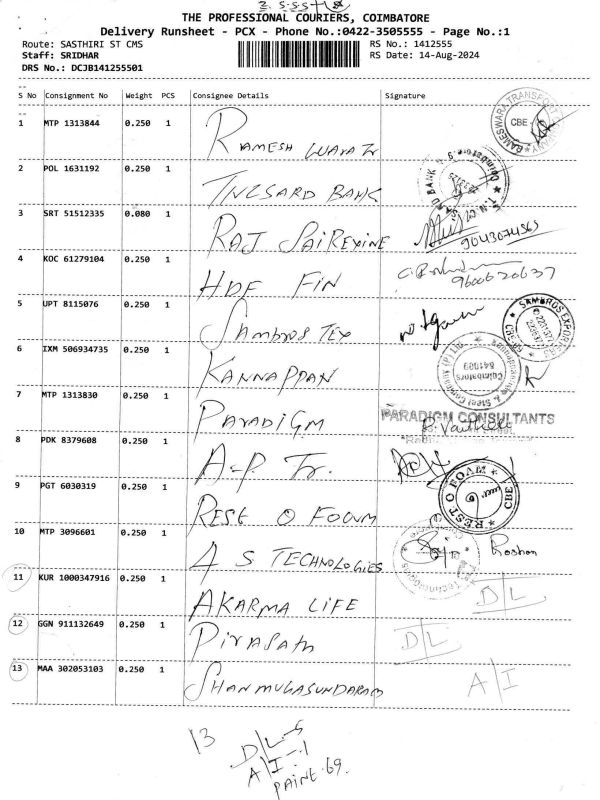 3. S.S.S
THE PROFESSIONAL COURIERS, COIMBATORE
Delivery Runsheet - PCX - Phone No.:0422-3505555 - Page No.:1
Route: SASTHIRI ST CMS RS No.: 1412555
Staff: SRIDHAR RS Date: 14-Aug-2024
DRS No.: DCJB141255501
S No Consignment No Weight PCS Consignee Details Signature
1 MTP 1313844 0.250 1 RAMESH
RAMESWARA TRANSPORT CBE
2 POL 1631192 0.250 1 TNCSARD BANK
BANK Coimbatore
3 SRT 51512335 0.080 1 RAJ SAIREXINE 9043074565
4 KOC 61279104 0.250 1 HDF FIN 9600620637
5 UPT 8115076 0.250 1 SAMBROS TEX
SAMBROS EXPORT
6 IXM 506934735 0.250 1 KANNAPPAN
& Steel Company (P) Ltd Coimbatore 641009
7 MTP 1313830 0.250 1 PARADIGM PARADIGM CONSULTANTS
8 PDK 8379608 0.250 1 A-P. Tr.
9 PGT 6030319 0.250 1 REST O FOUM
REST O FOAM CBE
10 MTP 3096601 0.250 1 4 S TECHNOLOGIES Roshan
Technologies
11 KUR 1000347916 0.250 1 AKARMA LIFE D/L
12 GGN 911132649 0.250 1 D/L
13 MAA 302053103 0.250 1 SHANMUGASUNDARAM A/I
13
D/L-5
A/I-1
PAINE-69.